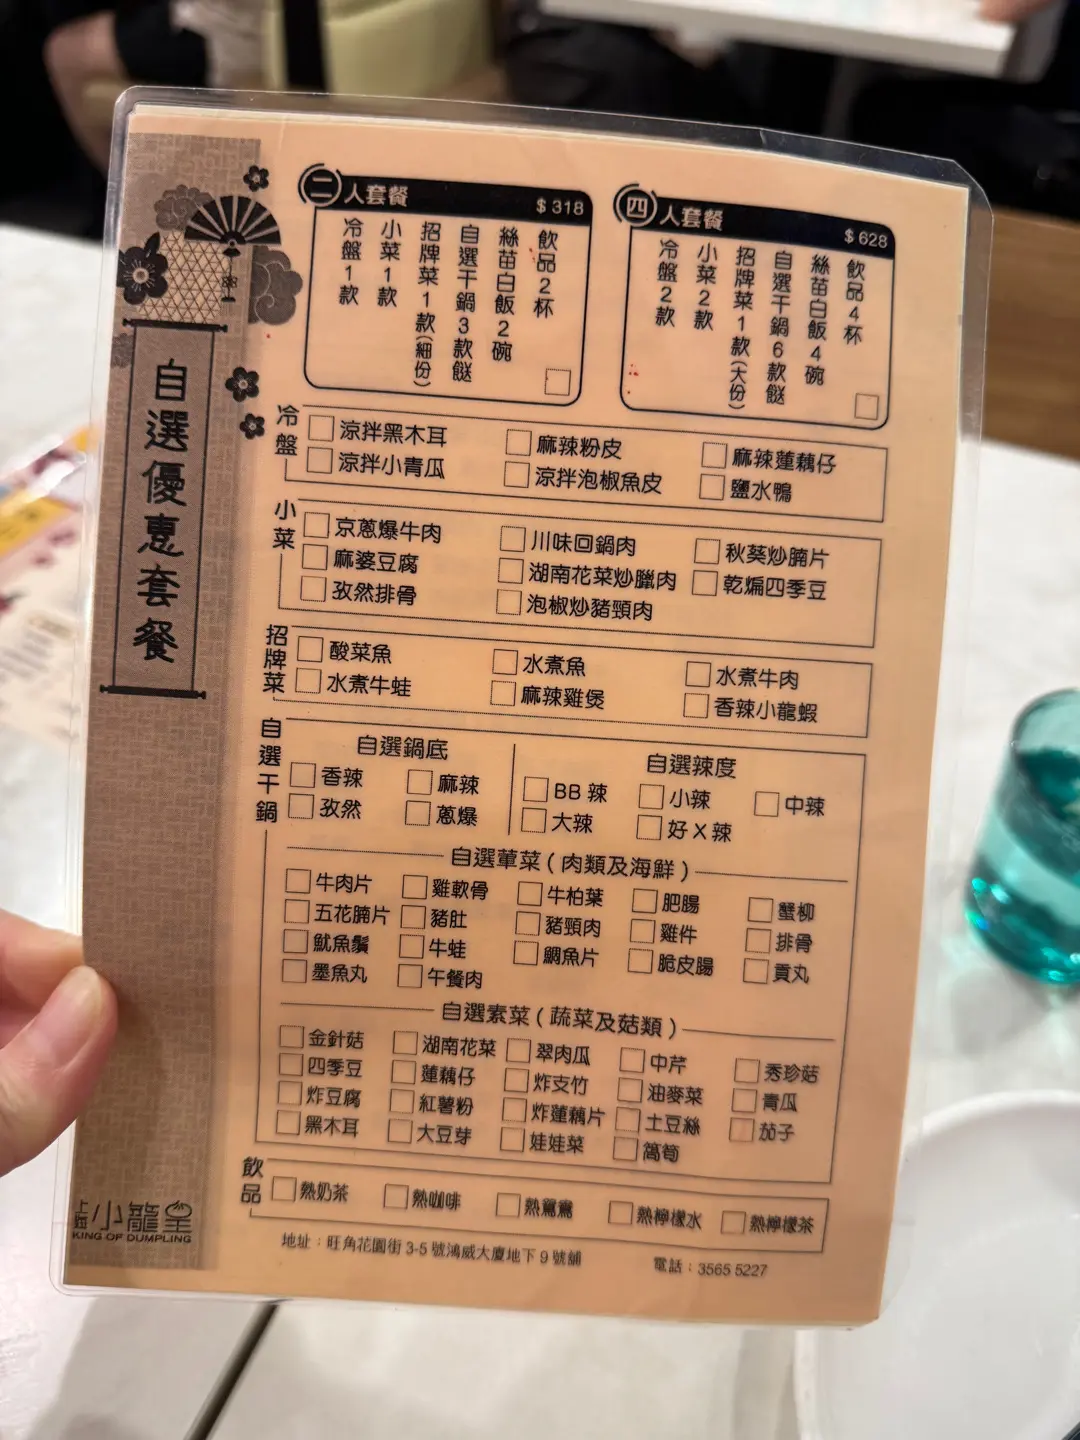 自選優惠套餐
二人套餐 $318
冷盤1款
小菜1款
招牌菜1款(細份)
自選干鍋3款餸
絲苗白飯2碗
飲品2杯
四人套餐 $628
冷盤2款
小菜2款
招牌菜1款(大份)
自選干鍋6款餸
絲苗白飯4碗
飲品4杯
冷盤
涼拌黑木耳 麻辣粉皮 麻辣蓮藕仔
涼拌小青瓜 涼拌泡椒魚皮 鹽水鴨
小菜
京蔥爆牛肉 川味回鍋肉 秋葵炒腩片
麻婆豆腐 湖南花菜炒臘肉 乾煸四季豆
孜然排骨 泡椒炒豬頸肉
招牌菜
酸菜魚 水煮魚 水煮牛肉
水煮牛蛙 麻辣雞煲 香辣小龍蝦
自選干鍋
自選鍋底
香辣 麻辣
孜然 蔥爆
自選辣度
BB辣 小辣 中辣
大辣 好X辣
自選葷菜(肉類及海鮮)
牛肉片 雞軟骨 牛柏葉 肥腸 蟹柳
五花腩片 豬肚 豬頸肉 雞件 排骨
魷魚鬚 牛蛙 鯛魚片 脆皮腸 貢丸
墨魚丸 午餐肉
自選素菜(蔬菜及菇類)
金針菇 湖南花菜 翠肉瓜 中芹 秀珍菇
四季豆 蓮藕仔 炸支竹 油麥菜 青瓜
炸豆腐 紅薯粉 炸蓮藕片 土豆絲 茄子
黑木耳 大豆芽 娃娃菜 萵筍
飲品
熱奶茶 熱咖啡 熱鴛鴦 熱檸檬水 熱檸檬茶
小籠皇
KING OF DUMPLING
地址：旺角花園街3-5號鴻威大廈地下9號舖 電話：3565 5227